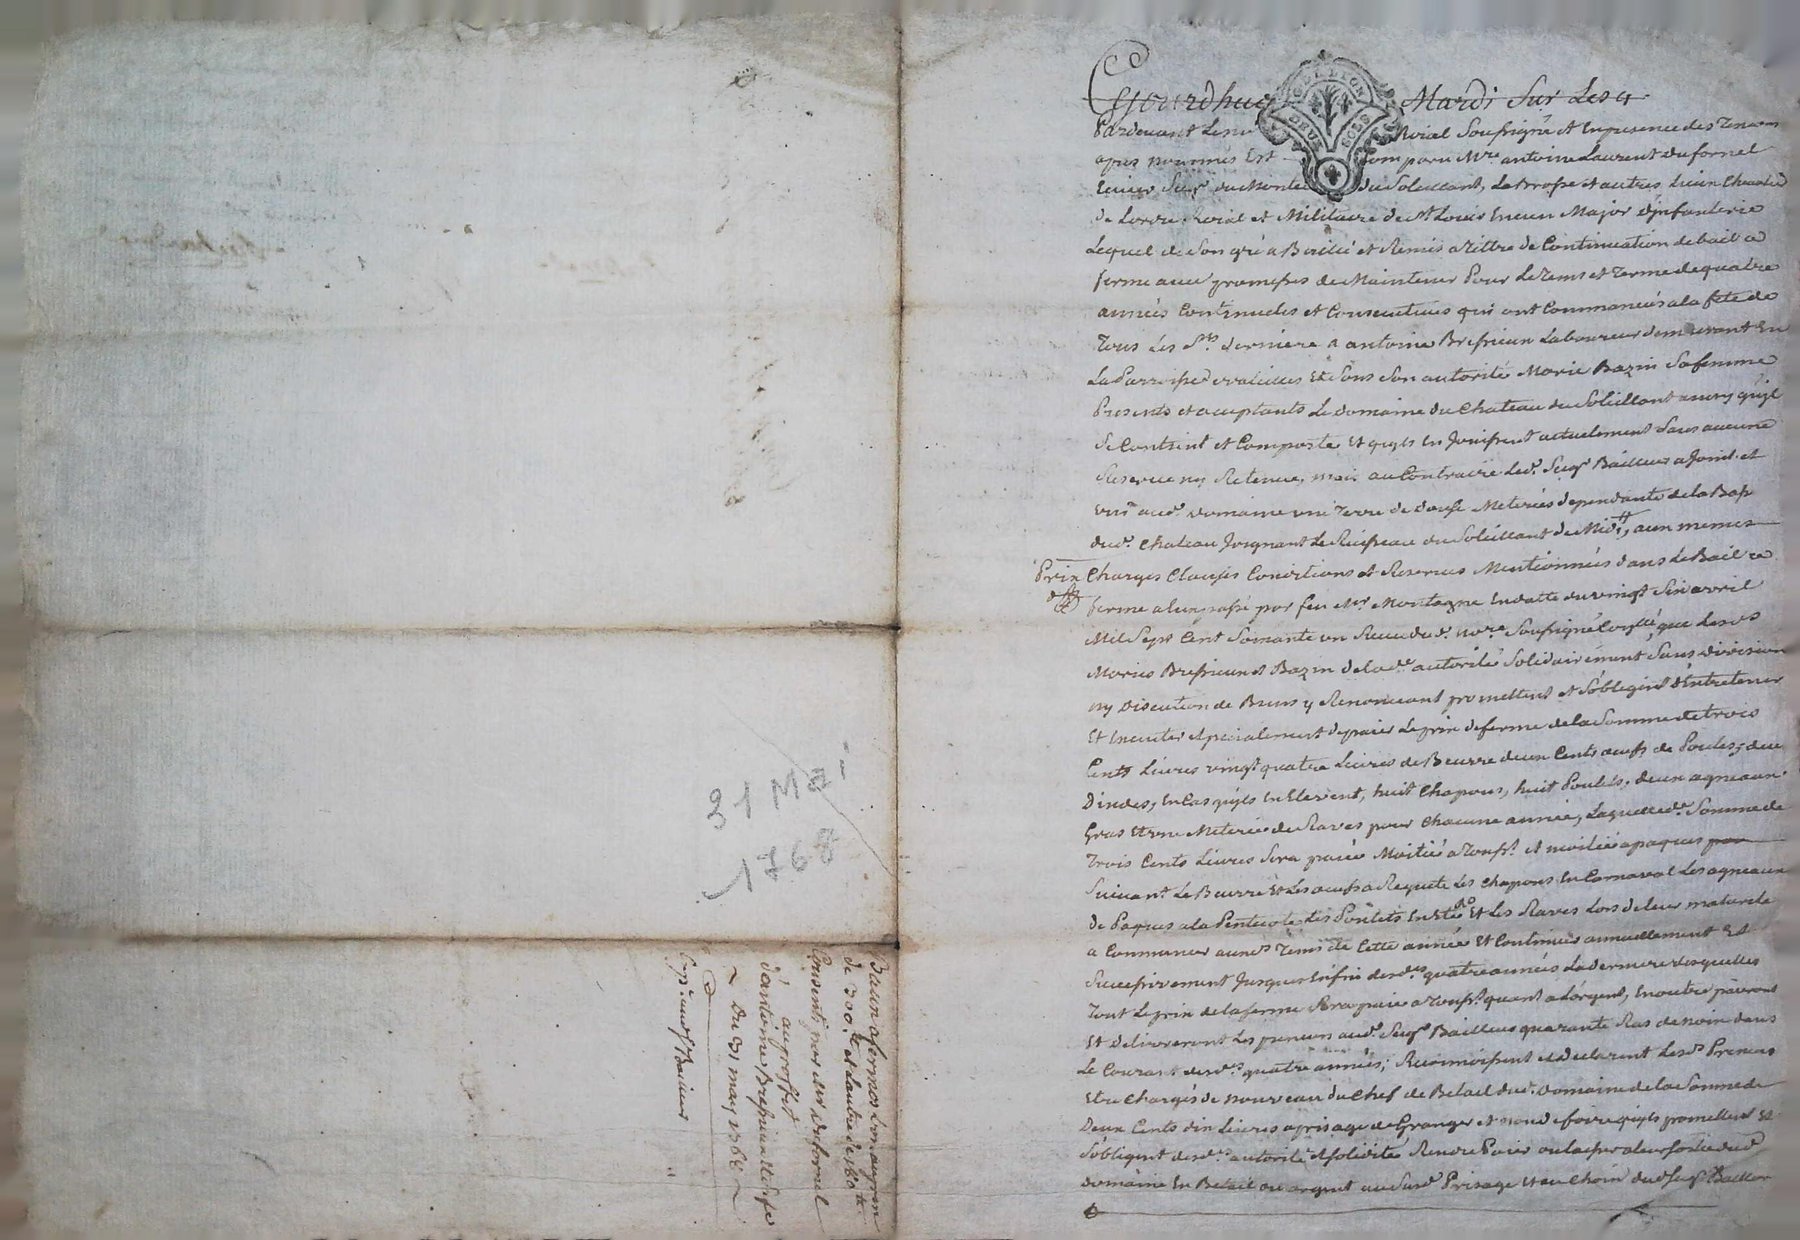 31 Mai
1768
de 300
consentis par Mr Dufornel
au proffit
d'antoine Bressieun et sa fe
Du 31 may 1768
G. DE LYON
DEUX SOLS
Cejourdhuy Mardi Sur Les 4
Pardevant Le no Roial Soussigné et En presence des Temoins
apres nommés Est comparu Mre antoine Laurent Dufornel
Ecuier Seigr du du Soleillant, La Brosse et autres Lieux Chevalier
de Lordre Roial et Militaire de St Louis Ancien Major d'jnfanterie
Lequel de Son gré a Baillé et Remis a Tiltre de Continuation de bail a
ferme avec promesses de Maintenir Pour Le Tems et Terme de quatre
années Continuelles et Consecutives qui ont Commencées a la fete de
Tous Les Sts derniere a antoine Bressieun Laboureur demeurant En
La Parroisse et Sous Son autorité Marie Bazin Sa femme
Presents et acceptants Le domaine du Chateau du Soleillant ainsy qu'jl
Se Contient et Comporte Et qu'jls En Jouissent actuelement Sans aucune
Reserve ny Retenue, mais au Contraire Led. Seigr Bailleur a Joint et
Uni aud. domaine une Terre de douse Meterées dependante de la Bass
dud. Chateau Joignant Le Ruisseau du Soleillant de Midi, aux memes
Prix Charges Clauses Conditions et Reserves Mentionnées dans Le Bail a
ferme a Eux passé par feu Mr Montagne En datte du vingt Six avril
Mil Sept Cent Soixante un Receu dud. nore Soussigné que Lesds
Mariés Bressieun et Bazin de la de autorité Solidairement Sans division
ny discution de Biens y Renonceant promettent et S'obligent d'Entretenir
Et Executer specialement de paier Le prix de ferme de la Somme de trois
Cents Livres vingt quatre Livres de Beurre deux Cents oeufs de Poules, deux
Dindes, En Cas qu'jls En Elevent, huit Chapons, huit Poulets, deux agneaux
Gras Et une Meterée de Raves pour Chacune année, Laquelle de Somme de
Trois Cents Livres Sera paiée Moitié a Toussts et moitié a paques
Suivant Le Beurre Et Les oeufs a Requete Les Chapons En Carnaval Les agneaux
de Paques a la Pentecote Les Poulets En Eté Et Les Raves Lors de leur maturité
a Commencer auxds Tems de Cette année Et Continuer annuellement Et
Successivement Jusques En fin desds quatre années La derniere desquelles
Tout Le prix de la ferme Sera paié a Toussts quant a L'argent, En outre paieront
Et delivreront Les preneurs aud. Seigr Bailleur quarante Ras de noix dans
Le Courant desds quatre années; Reconnoissent et declarent Lesds Preneurs
Etre Chargés de nouveau du Chef de Betail dud. Domaine de la Somme de
Deux Cents dix Livres a prisage de Granger et non de foire qu'jls promettent Et
S'obligent desds autorité et solidité Rendre Paier ou laisser a leur sortie dud.
domaine En Betail ou argent au Susd. Prisage Et au Choix dud. Seigr Bailleur